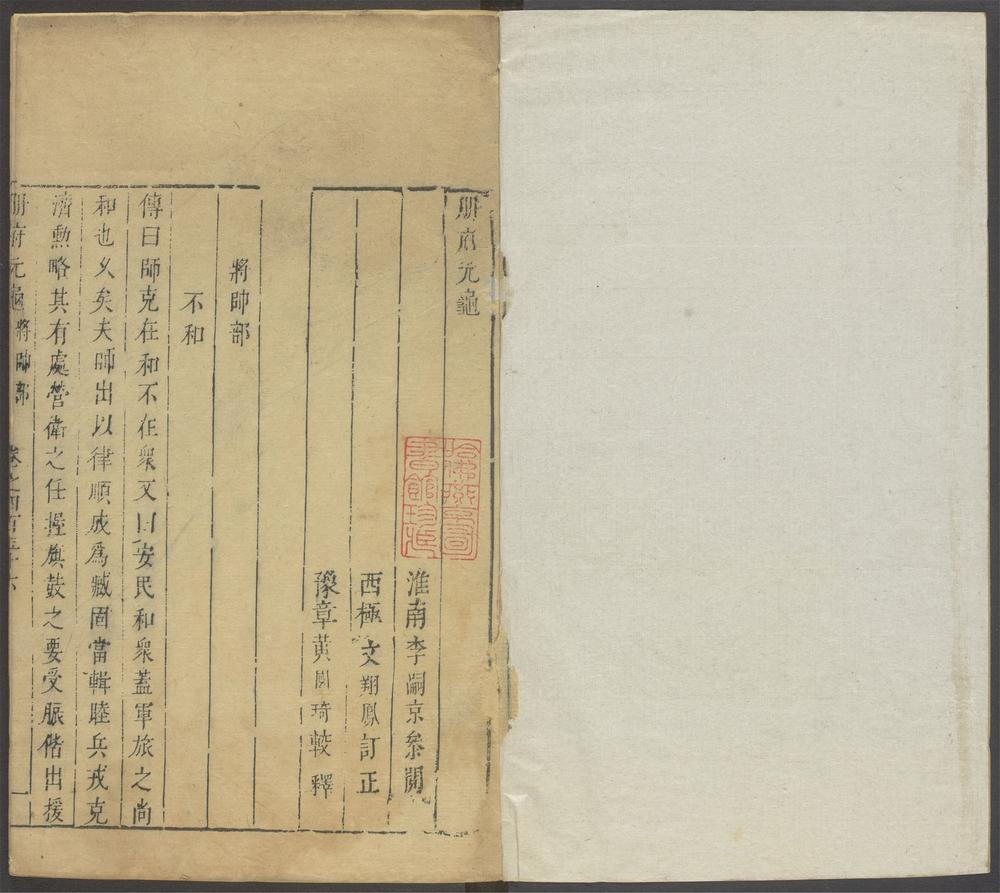 册府元龜
淮南李嗣京參閱
西極文翔鳳訂正
豫章黃國琦較釋
將帥部
不和
傳曰師克在和不在衆又曰安民和衆蓋軍旅之尚
和也久矣夫師出以律順成爲臧固當輯睦兵戎克
濟勲略其有處營衛之任握旗鼓之要受脤偕出援
册府元龜 將帥部 卷之四百五十六 一
哈佛燕京圖
書館珍藏